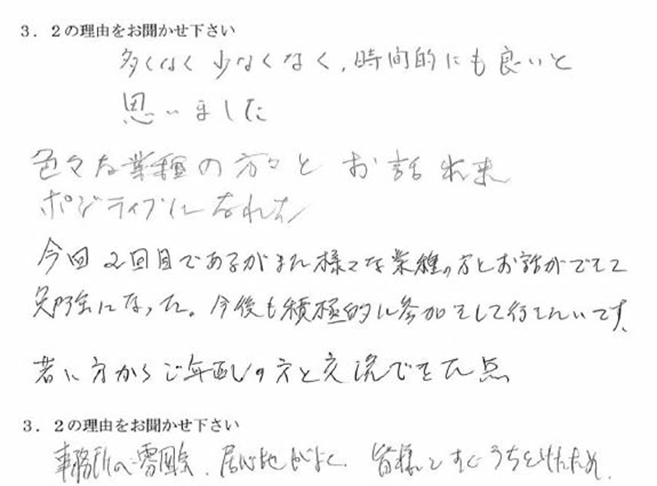 3．2の理由をお聞かせ下さい
多くなく少なくなく、時間的にも良いと
思いました
色々な業種の方々とお話出来
ポジティブになれた
今回2回目であるがまた様々な業種の方とお話ができて
勉強になった。今後も積極的に参加をして行きたいです。
若い方からご年配の方と交流できた点
3．2の理由をお聞かせ下さい
事務所の雰囲気、居心地がよく、皆様とすぐうちとけたため、